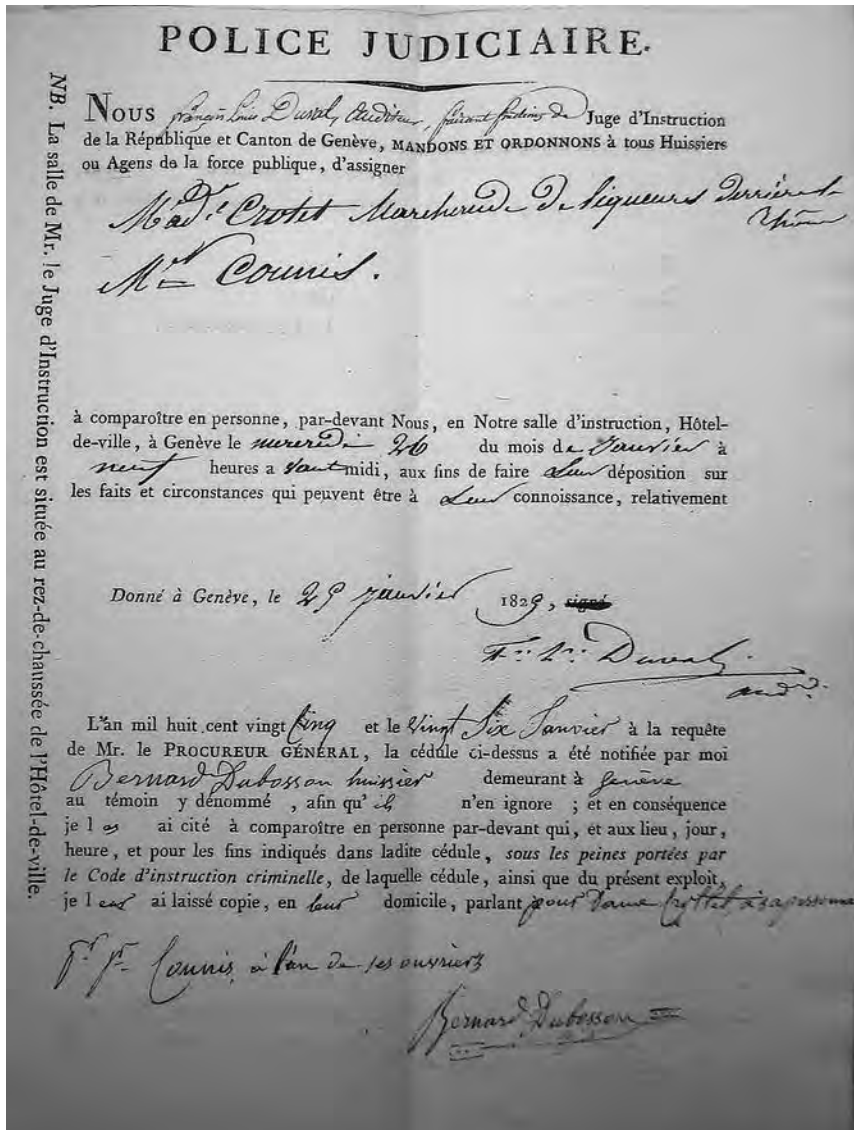 POLICE JUDICIAIRE.
NOUS françois Louis Duval, Auditeur, faisant fonctions de Juge d'Instruction
de la République et Canton de Genève, MANDONS ET ORDONNONS à tous Huissiers
ou Agens de la force publique, d'assigner
Mad.e Crotet Marchande de liqueurs derrière le
Rhône
Mr Counis.
à comparoître en personne, par-devant Nous, en Notre salle d'instruction, Hôtel-
de-ville, à Genève le mercredi 26 du mois de Janvier à
neuf heures a vant midi, aux fins de faire Leur déposition sur
les faits et circonstances qui peuvent être à Leur connoissance, relativement
Donné à Genève, le 25 janvier 1825, signé
Fs. Ls. Duval
aud.r.
L'an mil huit cent vingt Cinq et le Vingt Six Janvier à la requête
de Mr. le PROCUREUR GÉNÉRAL, la cédule ci-dessus a été notifiée par moi
Bernard Dubosson huissier demeurant à genève
au témoin y dénommé , afin qu' il n'en ignore ; et en conséquence
je l es ai cité à comparoître en personne par-devant qui, et aux lieu, jour,
heure, et pour les fins indiqués dans ladite cédule, sous les peines portées par
le Code d'instruction criminelle, de laquelle cédule, ainsi que du présent exploit,
je l eur ai laissé copie, en leur domicile, parlant pour Dame Crottet à sa personne
pr. Sr. Counis, à l'un de ses ouvriers
Bernard Dubosson
NB. La salle de Mr. le Juge d'Instruction est située au rez-de-chaussée de l'Hôtel-de-ville.